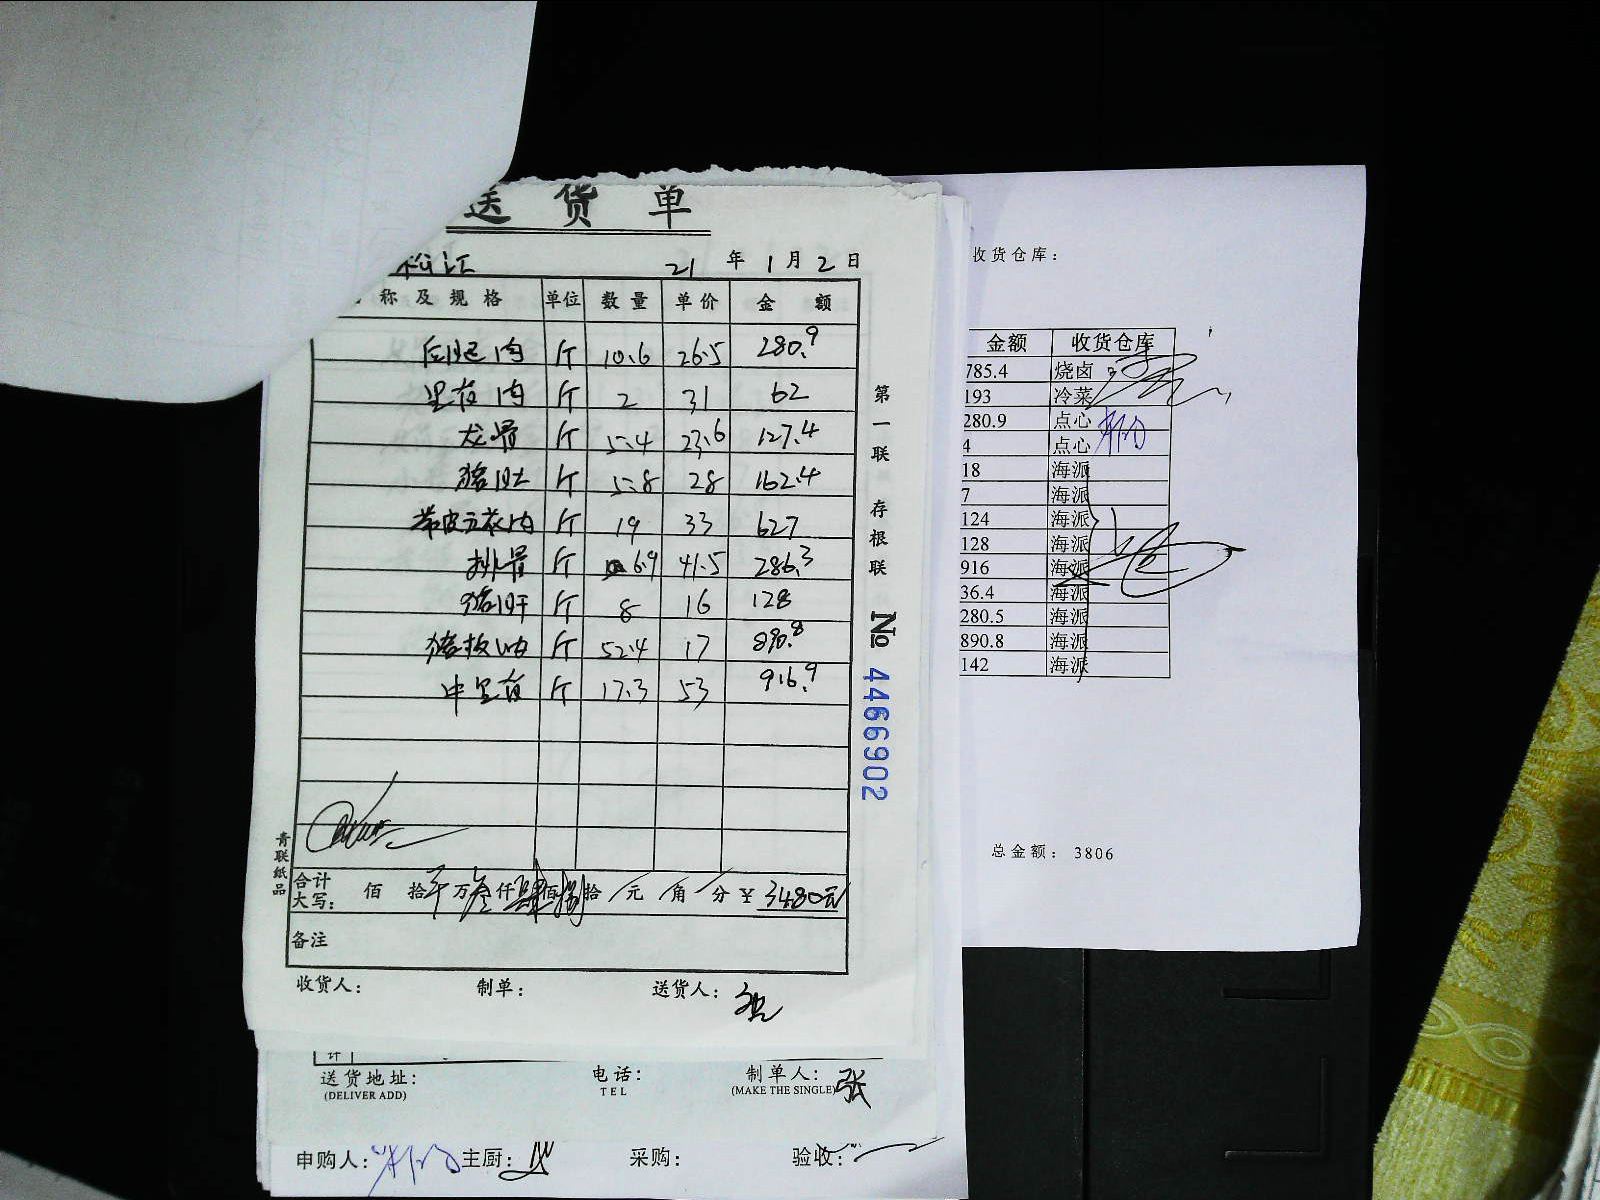 送货单
松江 21年1月2日
称及规格 单位 数量 单价 金额
后腿肉 斤 10.6 26.5 280.9
里脊肉 斤 2 31 62
龙骨 斤 5.4 23.6 127.4
猪肚 斤 5.8 28 162.4
带皮五花肉 斤 19 33 627
排骨 斤 6.9 41.5 286.3
猪肝 斤 8 16 128
猪板油 斤 52.4 17 890.8
中里脊 斤 17.3 53 916.9
合计大写: 佰 拾 万叁仟肆佰捌拾 元 角 分 ¥ 3480元
备注
收货人: 制单: 送货人:
第一联 存根联
№ 4466902
青联纸品
计
送货地址: 电话: 制单人: 张
(DELIVER ADD) TEL (MAKE THE SINGLE)
申购人: 主厨: 采购: 验收:
收货仓库:
金额 收货仓库
785.4 烧卤
193 冷菜
280.9 点心
4 点心
18 海派
7 海派
124 海派
128 海派
916 海派
36.4 海派
280.5 海派
890.8 海派
142 海派
总金额: 3806